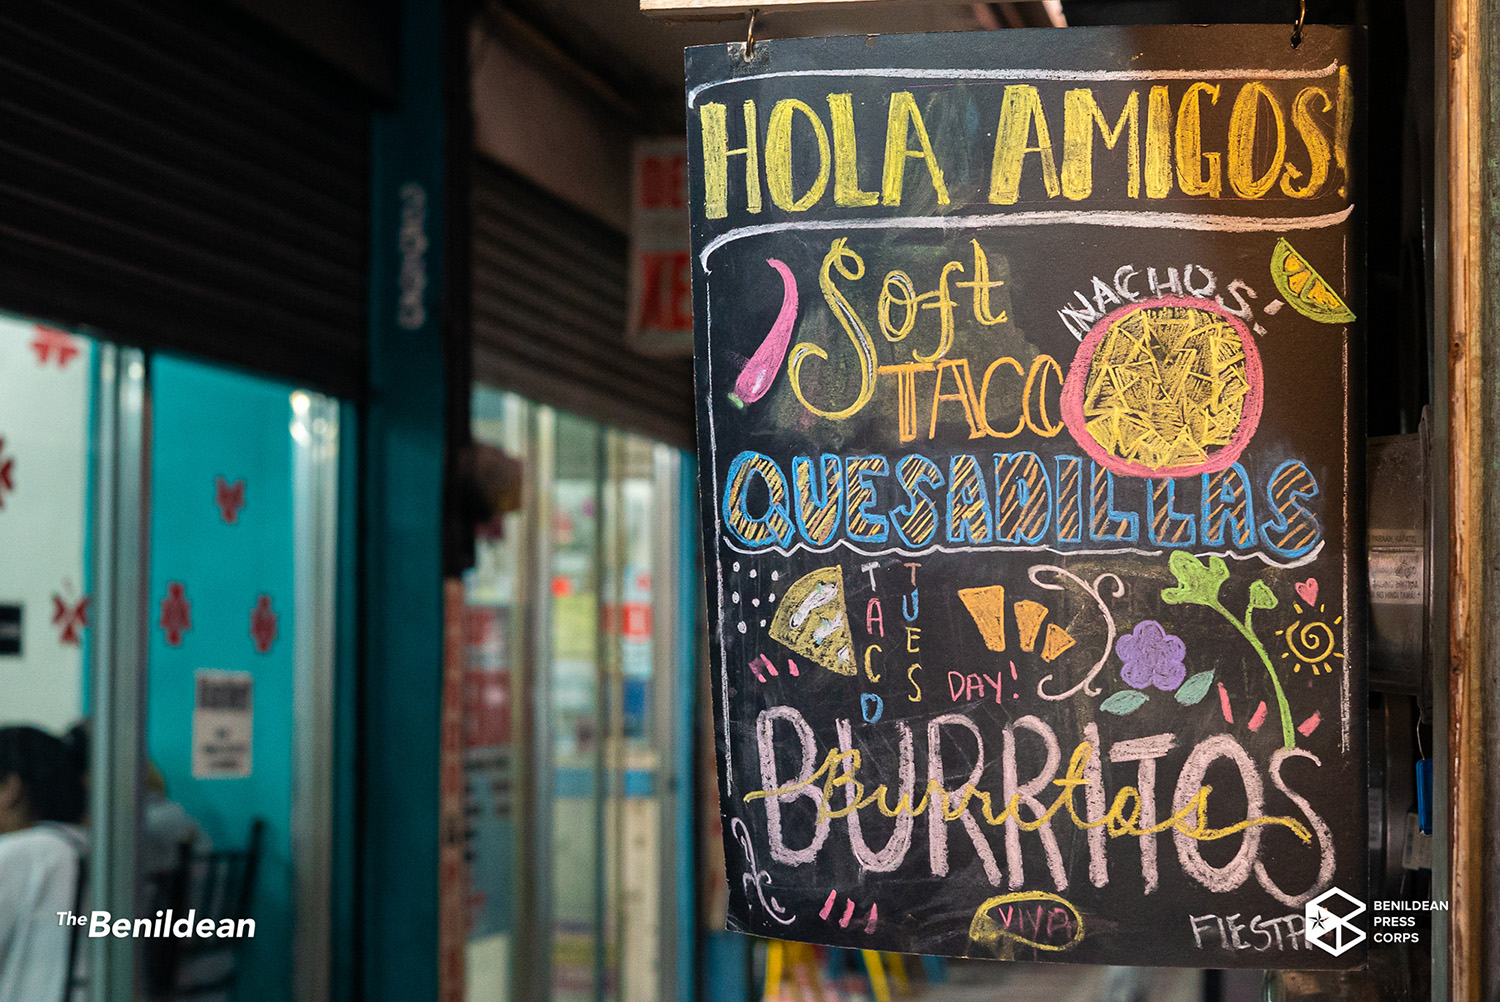 HOLA AMIGOS!
Soft
TACO
NACHOS!
QUESADILLAS
TACO
TUES
DAY!
BURRITOS
Burritos
VIVA
FIESTA
The Benildean
BENILDEAN
PRESS
CORPS